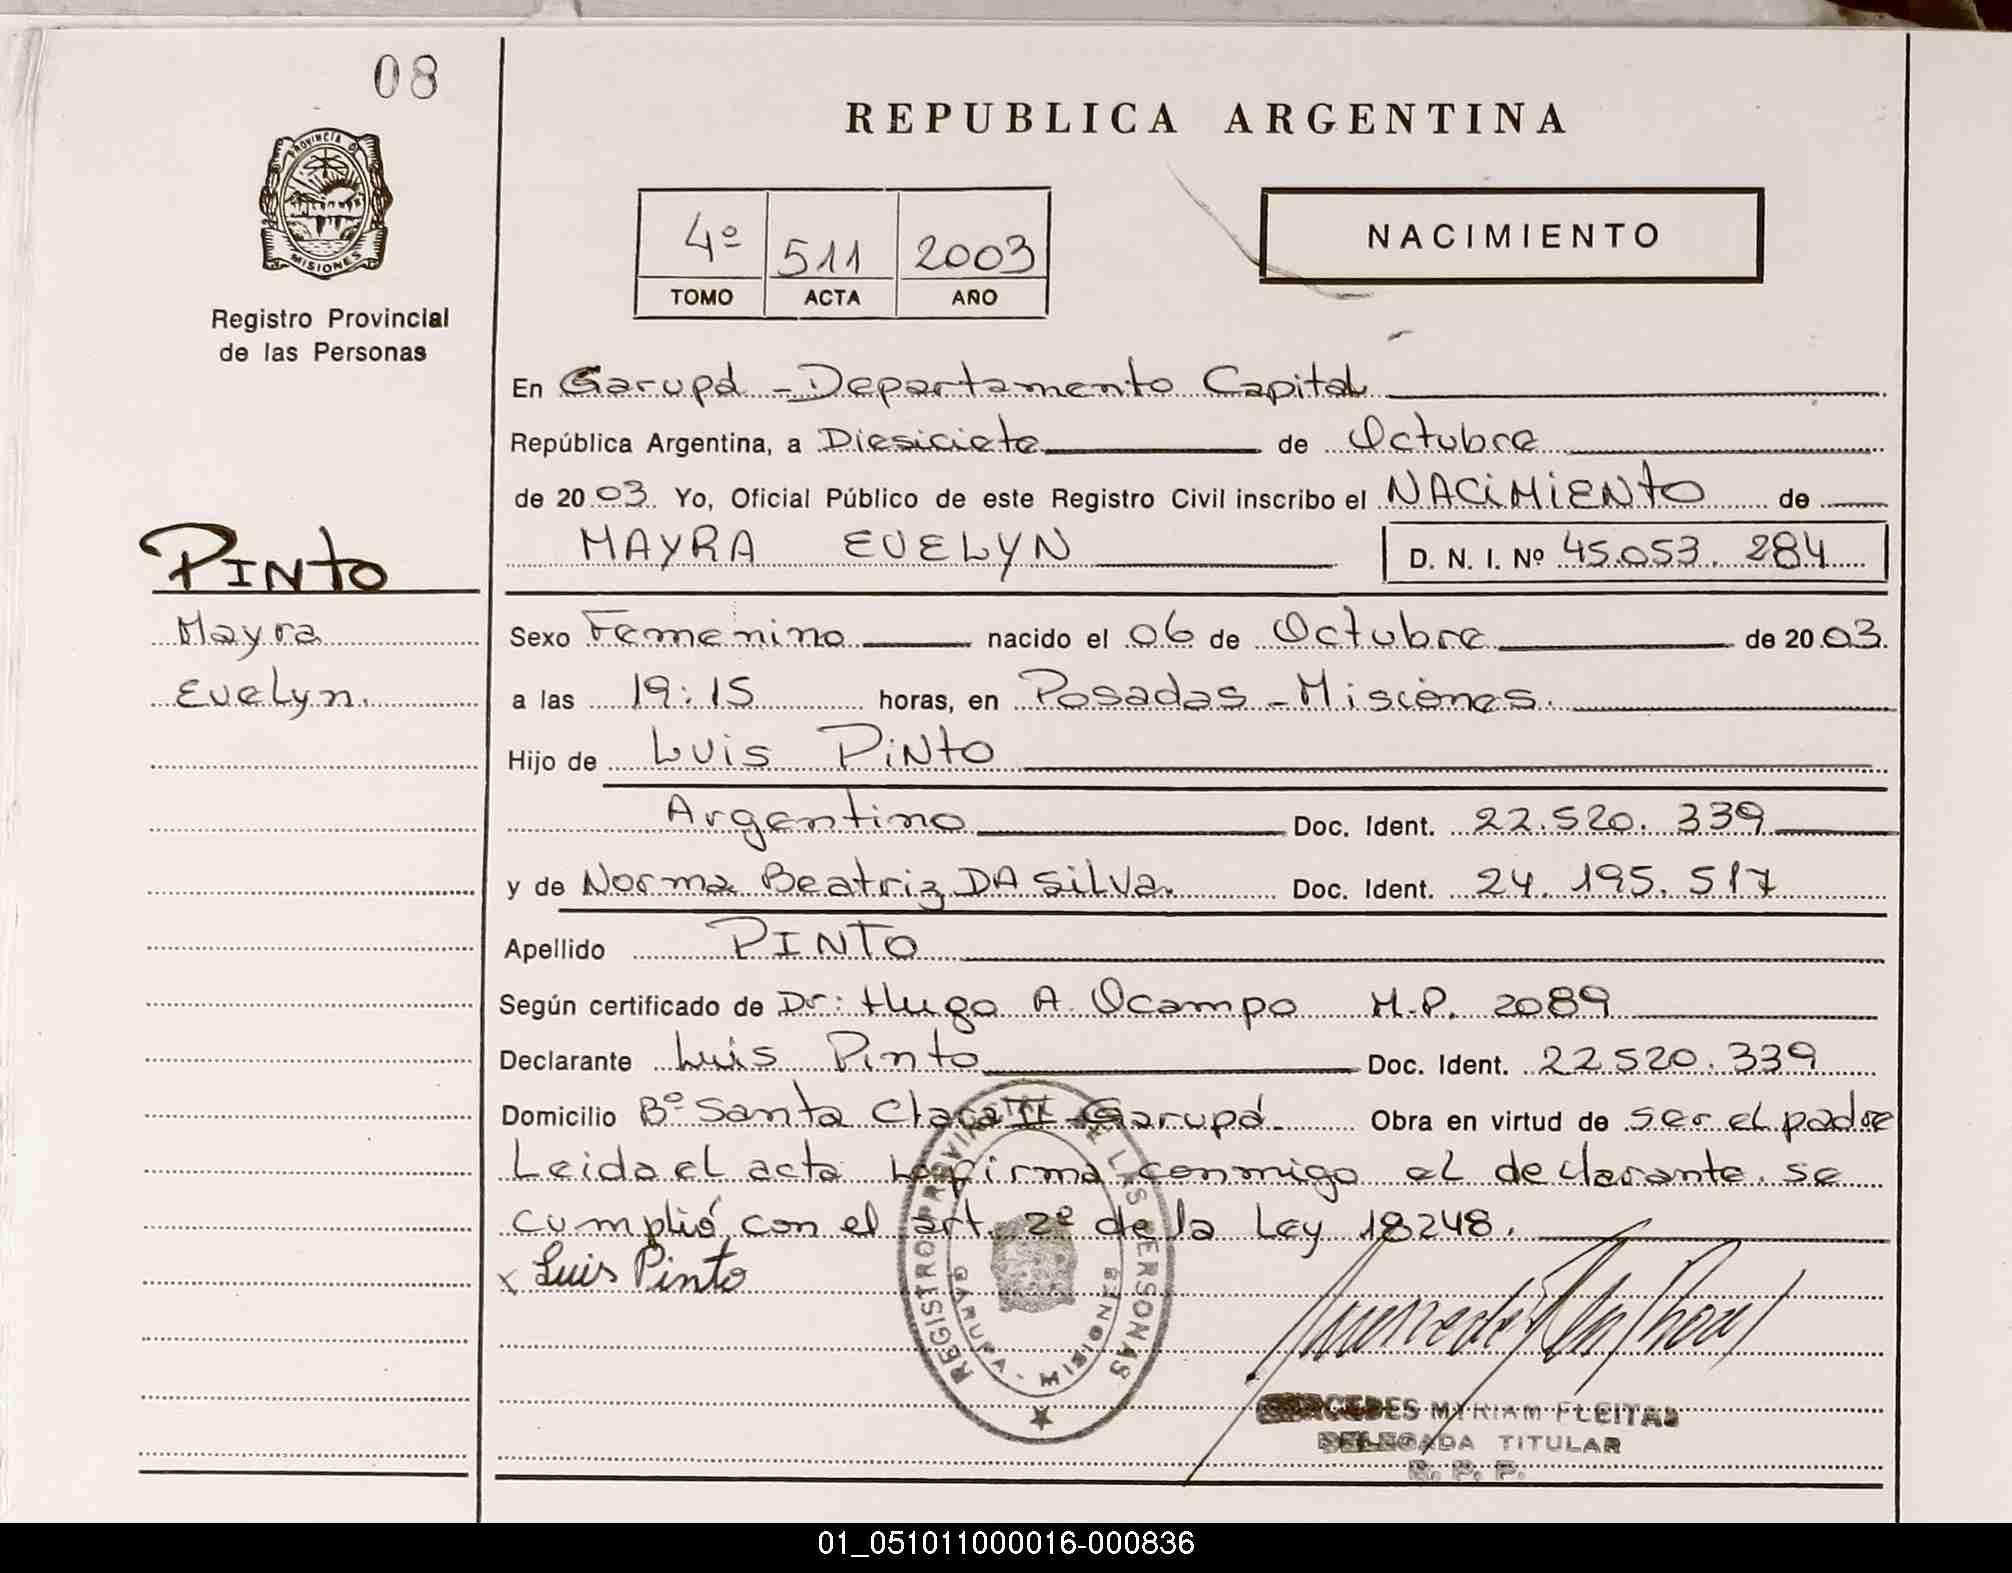 08
REPUBLICA ARGENTINA
PROVINCIA DE
MISIONES
Registro Provincial
de las Personas
4º 511 2003
TOMO ACTA AÑO
NACIMIENTO
En Garupá - Departamento Capital
República Argentina, a Diesiciete de Octubre
de 20 03. Yo, Oficial Público de este Registro Civil inscribo el NACIMIENTO de
MAYRA EVELYN D. N. I. Nº 45.053.284
PINTO
Mayra
Evelyn.
Sexo Femenino nacido el 06 de Octubre de 20 03.
a las 19:15 horas, en Posadas - Misiones.
Hijo de Luis Pinto
Argentino Doc. Ident. 22.520.339
y de Norma Beatriz DA SILVA. Doc. Ident. 24.195.517
Apellido PINTO
Según certificado de Dr: Hugo A. Ocampo M.P. 2089
Declarante Luis Pinto Doc. Ident. 22.520.339
Domicilio Bº Santa Clara II - Garupá. Obra en virtud de ser el padre
Leida el acta la firma conmigo el declarante. se
cumplió con el art. 2º de la Ley 18248.
x Luis Pinto
REGISTRO PROVINCIAL DE LAS PERSONAS
GARUPA - MISIONES
MERCEDES MYRIAM FLEITAS
DELEGADA TITULAR
R. P. P.
01_051011000016-000836